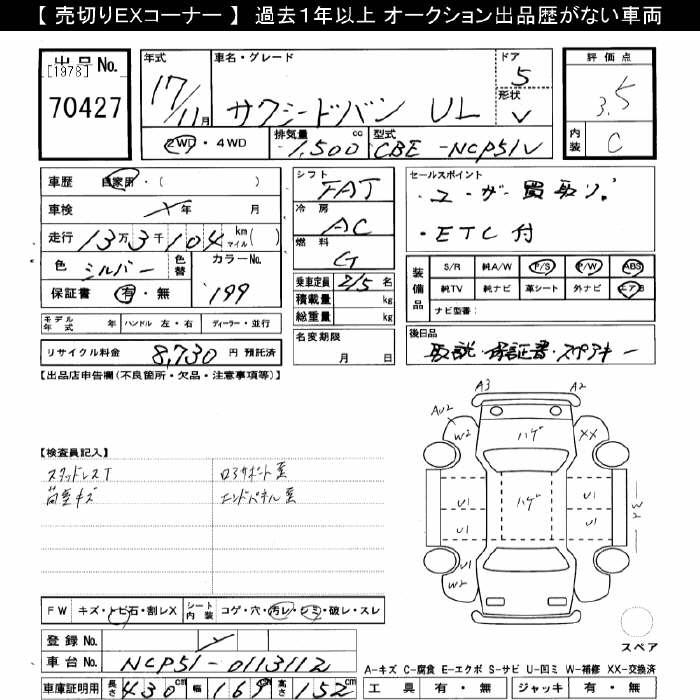 【 売切りEXコーナー 】 過去1年以上 オークション出品歴がない車両
出品No.
[1978]
70427
年式
17/11月
車名・グレード
サクシードバン UL
ドア
5
形状
V
評価点
3.5
内装
C
2WD・4WD
排気量
1,500 cc
型式
CBE-NCP51V
車歴 自家用・( )
車検 年 月
走行 13万3千104 km マイル( )
色 シルバー 色替
カラーNo.
199
保証書 有・無
シフト
FAT
冷房
AC
燃料
G
乗車定員 2/5 名
積載量 kg
総重量 kg
名変期限
月 日
セールスポイント
・ユーザー買取り。
・ETC付
装備品
S/R 純A/W P/S P/W ABS
純TV 純ナビ 革シート 外ナビ エアB
ナビ型番:
モデル年式 年 ハンドル 左・右 ディーラー・並行
リサイクル料金 8,730 円 預託済
後日品
取説・保証書・スペアキー
【出品店申告欄(不良箇所・欠品・注意事項等)】
A3 A2
AU2
W2 ハゲ XX
【検査員記入】
スタッドレスT
荷室キズ
エンドパネル歪
U1 ハゲ U1
U1 U1
W2
U1
W2
FW キズ・トビ石・割レX シート内装 コゲ・穴・汚レ・シミ・破レ・スレ
登録No.
車台No. NCP51-0113112
スペア
A-キズ C-腐食 E-エクボ S-サビ U-凹ミ W-補修 XX-交換済
車庫証明用 長さ 430 cm 幅 169 cm 高さ 152 cm
工具 有・無 ジャッキ 有・無